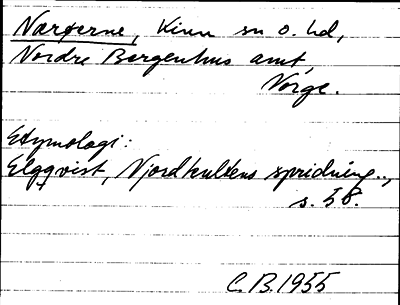 Nærøerne, Kinn sn o. hd,
Nordre Bergenhus amt,
Norge.
Etymologi:
Elgqvist, Njordkultens spridning..,
s. 58.
C.B.1955